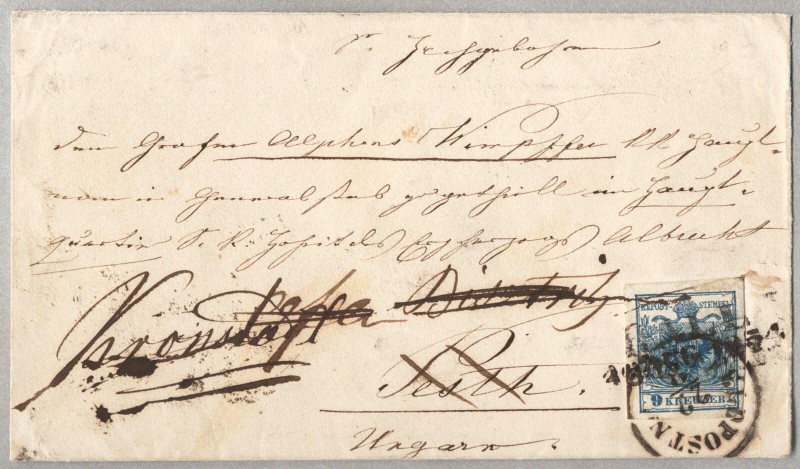 Sr Hochgeboren
den Grafen Alphons Wimpffen KK Haupt-
mann in Generalstab zugetheilt im Haupt-
quartier Sr K. Hoheit des Erzherzogs Albrecht
Kronstadt Bistritz
Pesth.
Ungarn.
KK POST-STEMPEL
9 KREUZER